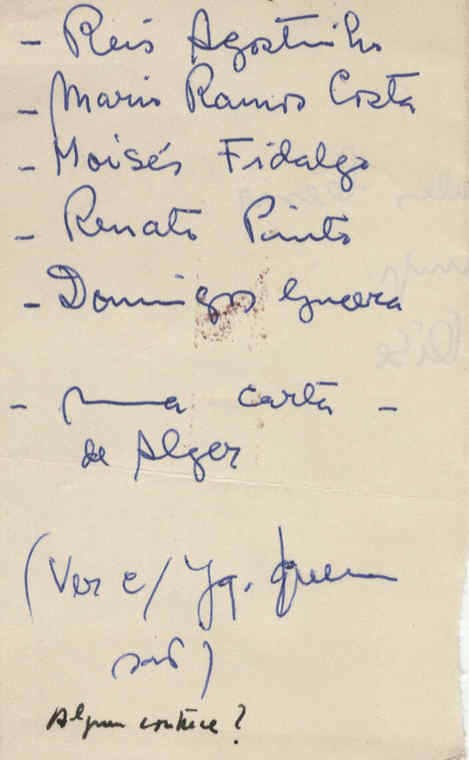 - Reis Agostinho
- Mario Ramos Costa
- Moisés Fidalgo
- Renato Pinto
- Domingos Guerra
- numa carta -
de Alger
(Ver c/ Yq. quem
são)
Alguem conhece?